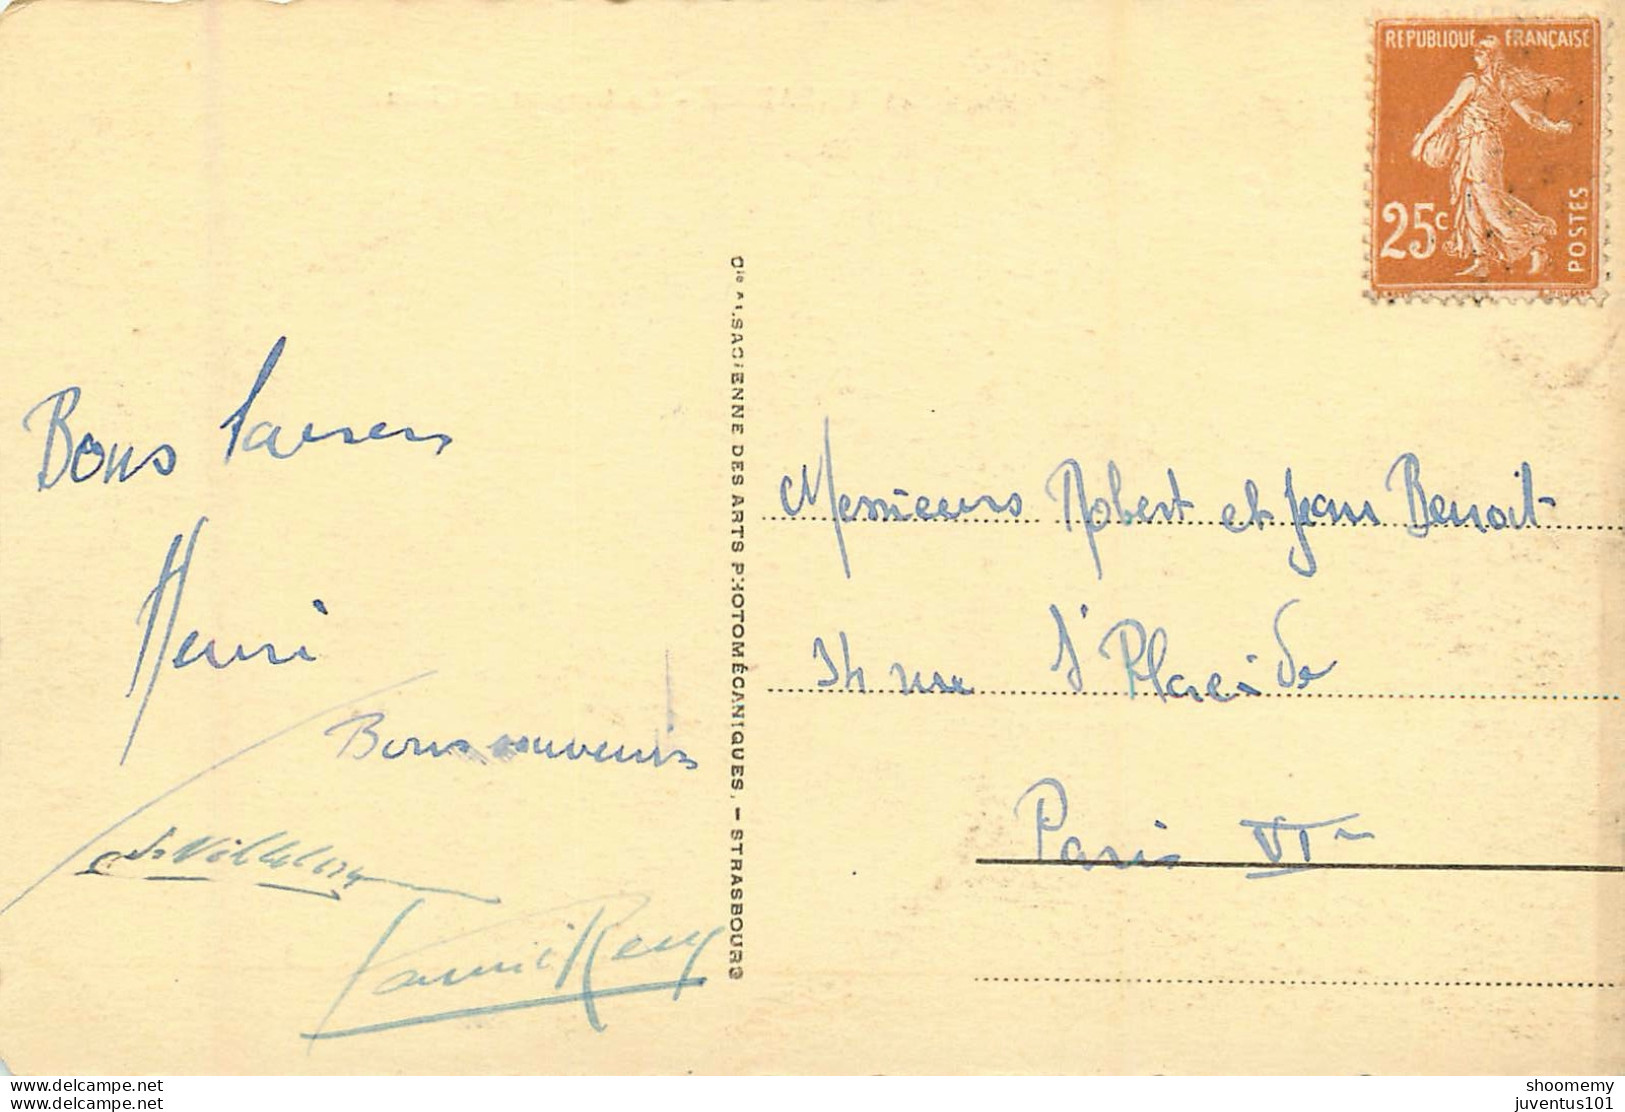 REPUBLIQUE FRANÇAISE
25c
POSTES
Bons baisers
Henri
Bons souvenirs
Cie ALSACIENNE DES ARTS PHOTOMÉCANIQUES. – STRASBOURG
Messieurs Robert et Jean Benoit
34 rue St Placide
Paris VIe
delcampe.net
delcampe.net
shoomemy
juventus101